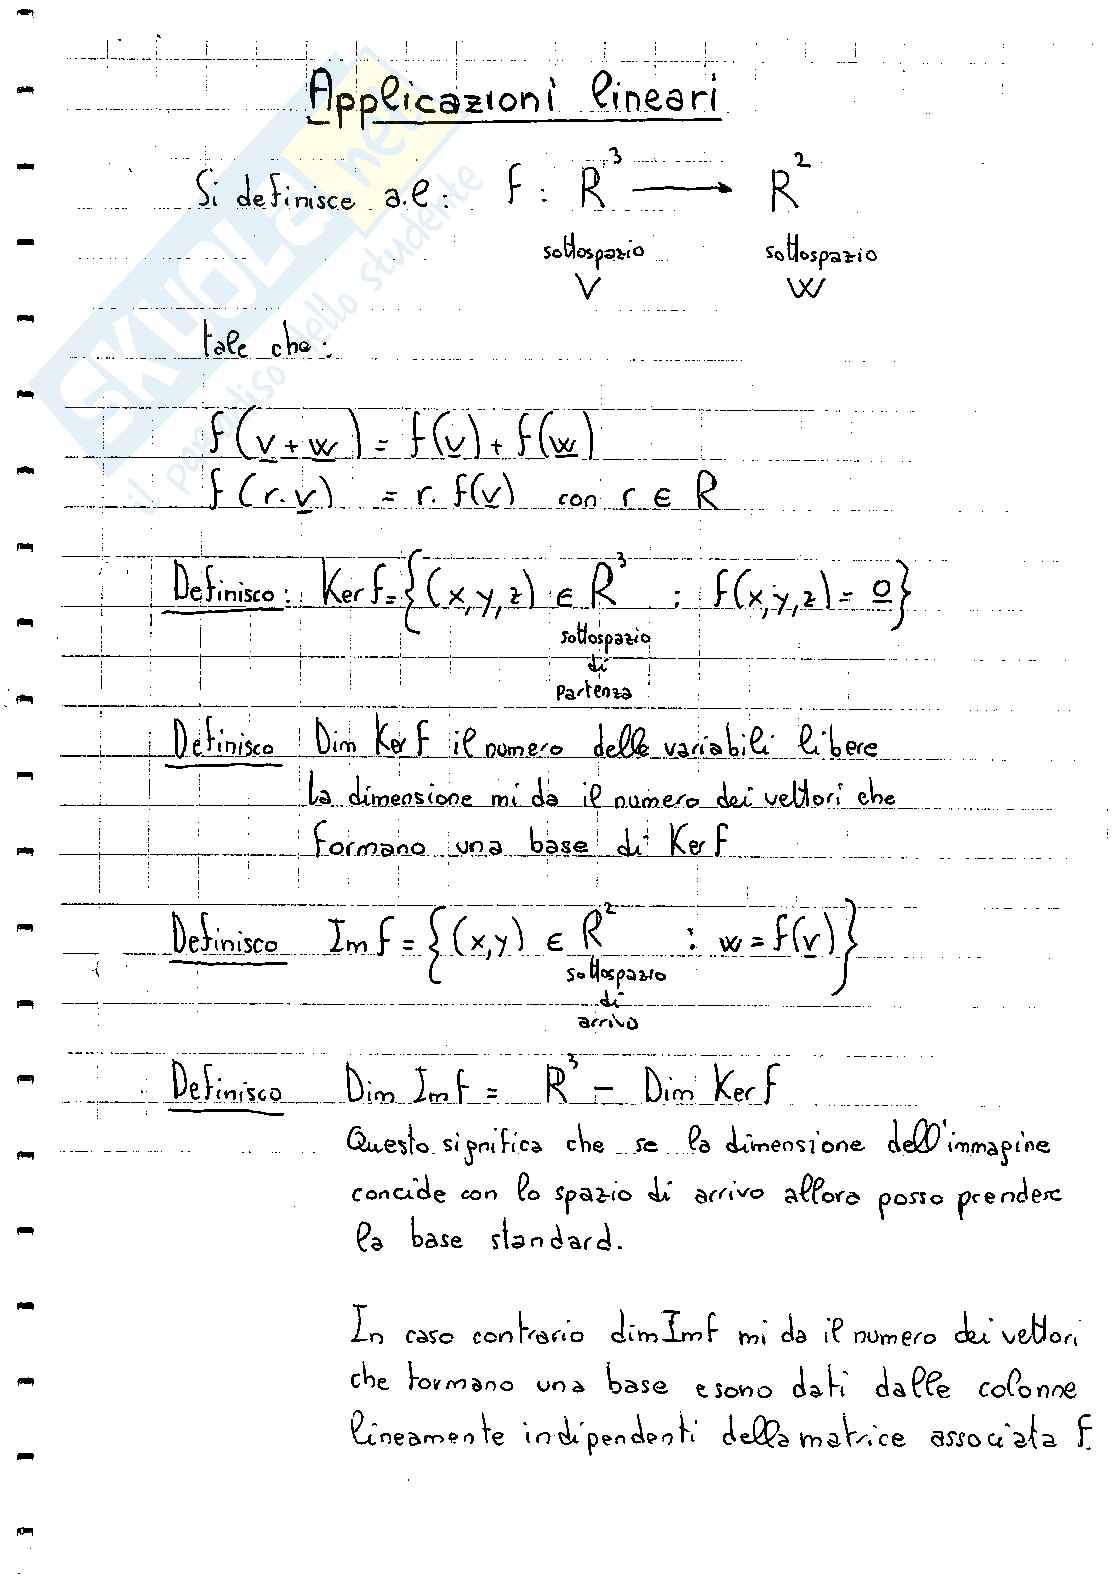 Applicazioni lineari
Si definisce a.l: f: R³ → R²
sottospazio sottospazio
V W
tale che:
f(v+w) = f(v)+f(w)
f(r.v) = r. f(v) con r ∈ R
Definisco: Ker f = {(x,y,z) ∈ R³ : f(x,y,z) = 0}
sottospazio
di
partenza
Definisco Dim Ker f il numero delle variabili libere
la dimensione mi da il numero dei vettori che
formano una base di Ker f
Definisco Im f = {(x,y) ∈ R² : w = f(v)}
sottospazio
di
arrivo
Definisco Dim Im f = R³ - Dim Ker f
Questo significa che se la dimensione dell'immagine
concide con lo spazio di arrivo allora posso prendere
la base standard.
In caso contrario dim Im f mi da il numero dei vettori
che formano una base e sono dati dalle colonne
lineamente indipendenti della matrice associata f.
SKUOLA.net
il paradiso dello studente